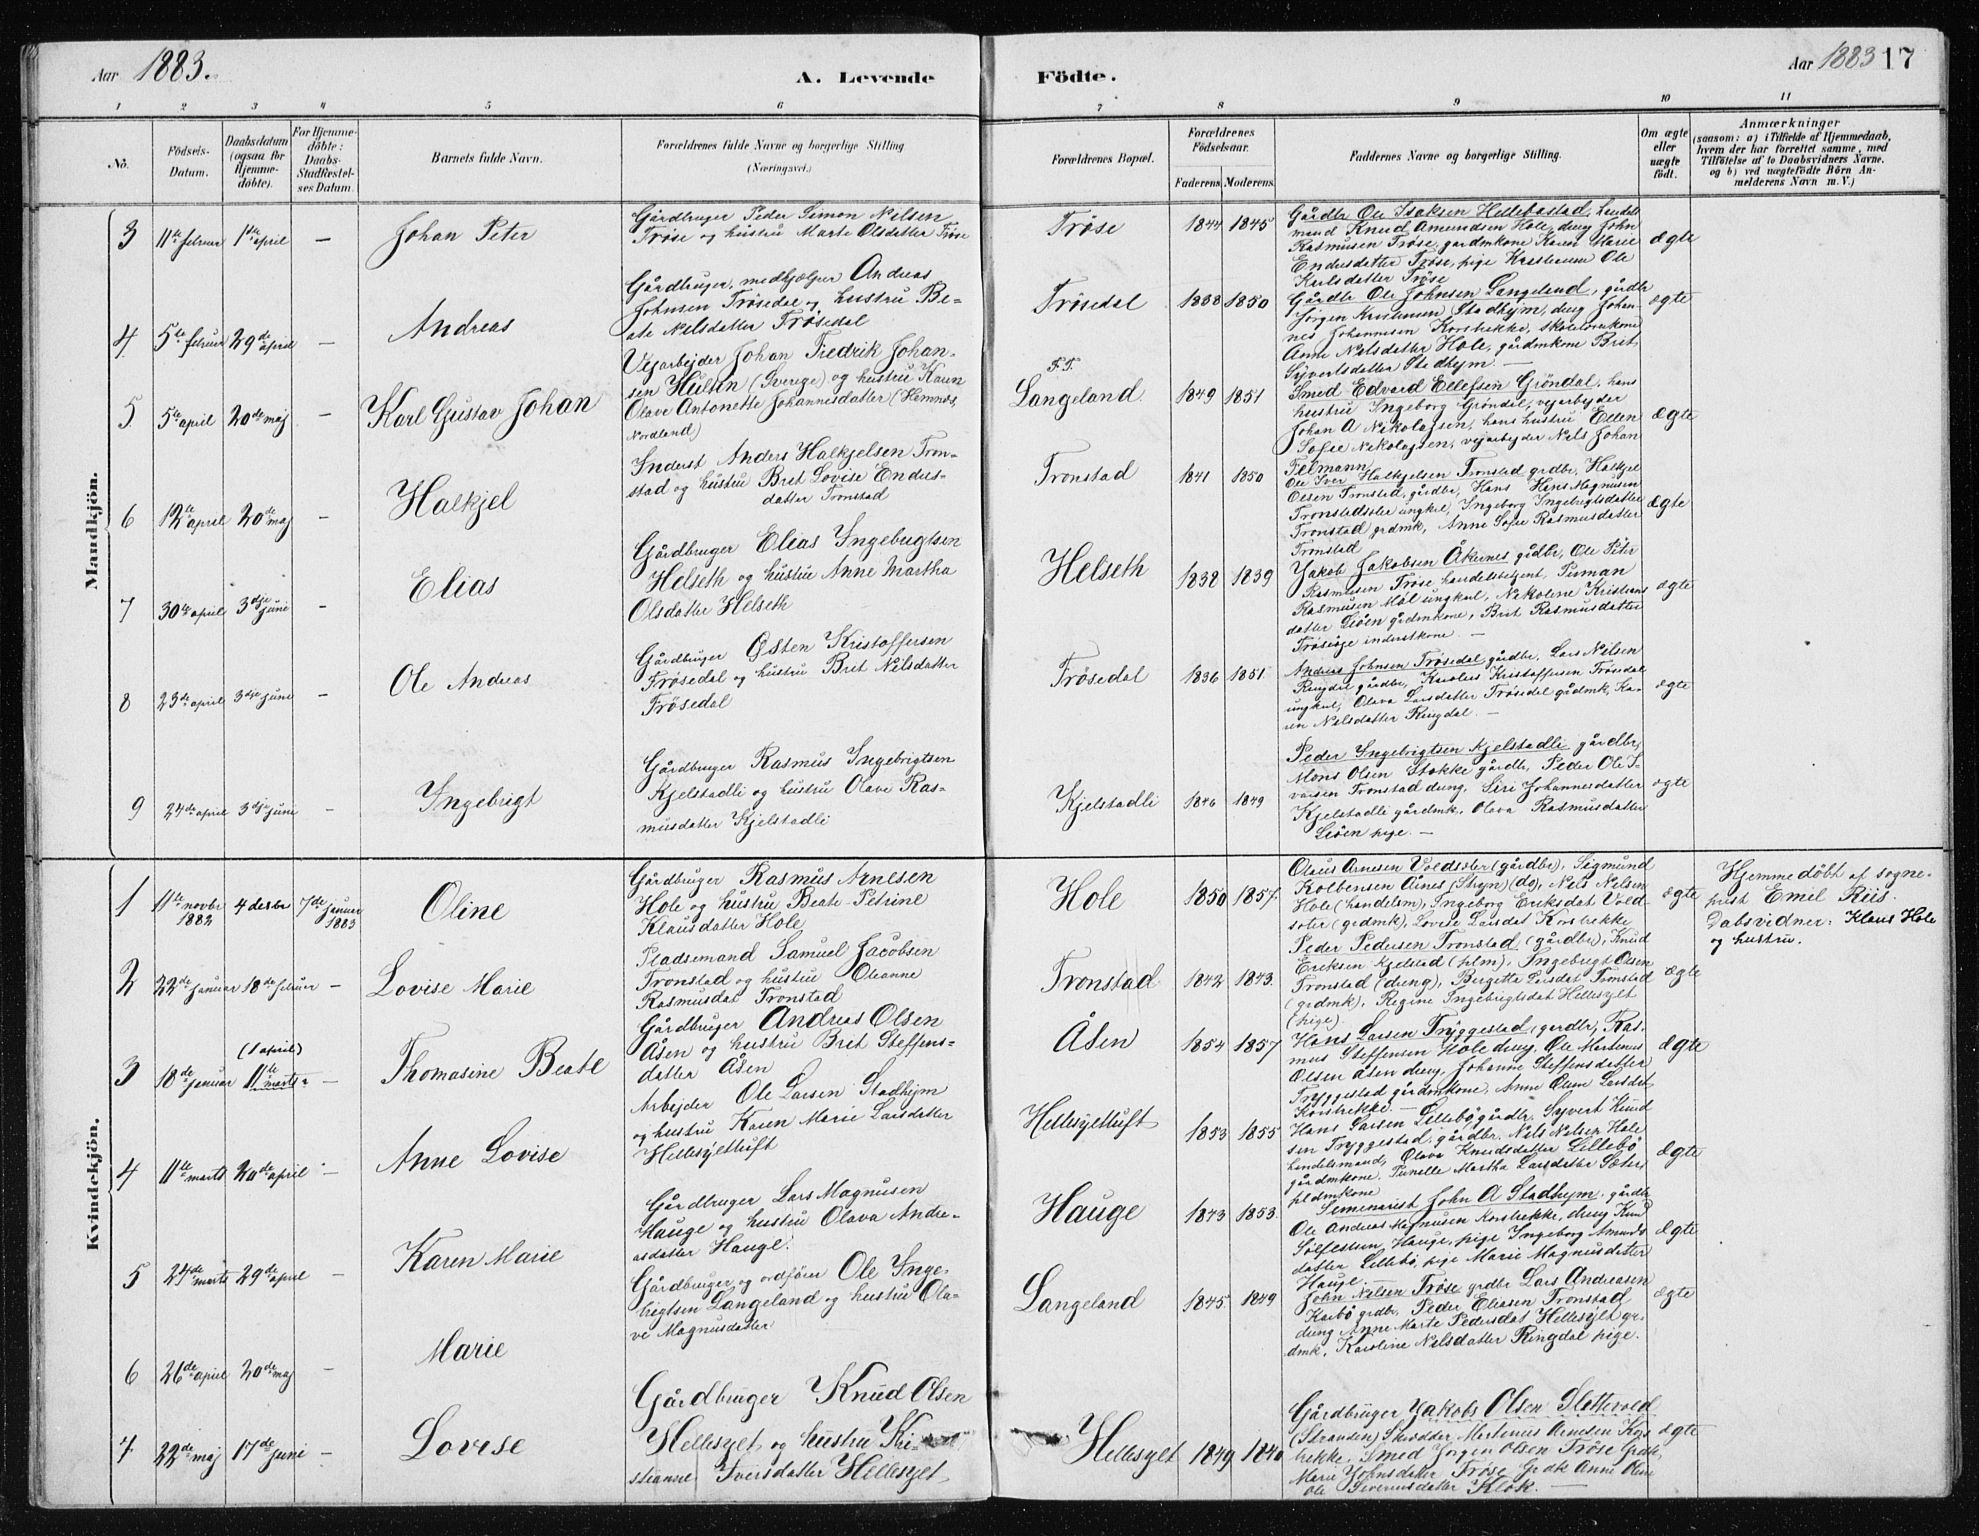 Aar 1883. A. Levende Födte. Aar 1883 17
1 2 3 4 5 6 7 8 9 10 11
No. Födsels-Datum. Daabsdatum (ogsaa for Hjemmedöbte). For Hjemmedöbte: Daabs-Stadfæstelses Datum. Barnets fulde Navn. Forældrenes fulde Navne og borgerlige Stilling (Næringsvei.) Forældrenes Bopæl. Forældrenes Födselsaar. Faderens. Moderens. Faddernes Navne og borgerlige Stilling. Om ægte eller uægte födt. Anmærkninger
(saasom: a) i Tilfælde af Hjemmedaab,
hvem der har forrettet samme, med
Tilföielse af to Daabsvidners Navne.
og b) ved uægtefödte Börn Anmelderens Navn m. V.)
Mandkjön.
3 11te februar 1ste april — Johan Peter
Gårdbruger Peder Simon Nilsen
Trøse og hustru Marte Olsdatter Trøse
Trøse 1844 1845
Gårdbr Ole Isaksen Hellebostad, handels
mand Knud Amundsen Hole, dreng John
Rasmusen Trøse, gårdmkone Karen Marie
Endresdatter Trøse, pige
Karlsdatter Trøse
ægte
4 5te februar 29de april — Andreas
Gårdbruger, medhjælper Andreas
Johnsen Trøsedal og hustru Be-
ate Nilsdatter Trøsedal
Trøsedal 1838 1850
Gårdbr Ole Johnsen Langeland, gårdbr
Jørgen Kristensen Stadhejm, dreng Johan-
nes Johannesen Korsbrekke, skolelærerkone
Anne Nilsdatter Hole, gårdmkone Brit
Syvertsdatter Stadhejm. —
ægte
5 5te april 20de maj — Karl Gustav Johan
Vejarbejder Johan Fredrik Johan-
sen Hultin (Sverige) og hustru Karen
Olava Antonette Johannesdatter (Hemnes,
Nordland)
F.T.
Langeland 1849 1851
Smed Edvard Ellefsen Gröndal, hans
hustru Ingeborg Gröndal, vejarbejder
Johan A Nikolajsen, hans hustru Ellen
Sofie Nikolajsen, vejarbejder Nils Johan
Telmann
ægte
6 12te april 20de maj — Halkjel
Inderst Anders Halkjelsen Tron-
stad og hustru Brit Lovise Endres-
datter Tronstad
Tronstad 1841 1850
Ole Iver Halkjelsen Tronstad grdbr, Halkjel
Olsen Tronstad, gårdbr, Hans Hans Magnusen
Tronstadsæter ungkal, Ingeborg Ingebrigtsdatter
Tronstad grdmk, Anne Sofie Rasmusdatter
Tronstad
ægte
7 30te april 3dje juni — Elias
Gårdbruger Elias Ingebrigtsen
Helseth og hustru Anne Martha
Olsdatter Helseth
Helseth 1838 1839
Jakob Jakobsen Åkernes gårdbr, Ole Peter
Rasmusen Trøse handelsbetjent,
Rasmusen Møl ungkal, Nikoline Kristians
datter Liöen gårdmkone, Brit Rasmusdatter
Trøseøje inderstkone. —
ægte
8 23de april 3dje juni — Ole Andreas
Gårdbruger Østen Kristoffersen
Trøsedal og hustru Brit Nilsdatter
Trøsedal
Trøsedal 1836 1851
Andreas Johnsen Trøsedal gårdbr, Lars Nilsen
Ringdal gårdbr, Karolus Kristoffersen Trøsedal
ungkal, Olava Larsdatter Trøsedal gårdmk, Ka-
ren Nilsdatter Ringdal. —
ægte
9 24de april 3dje juni — Ingebrigt
Gårdbruger Rasmus Ingebrigtsen
Kjelstadli og hustru Olave Ras-
musdatter Kjelstadli
Kjelstadli 1846 1849
Peder Ingebrigtsen Kjelstadli gårdbr,
Mons Olsen Stokke gårdbr, Peder Ole I-
varsen Tronstad dreng, Siri Johannesdatter
Kjelstadli gårdmk, Olava Rasmusdatter
Liöen pige. —
ægte
Kvindekjön.
1 11te novbr 1882 4 desbr 7de januar 1883 Oline
Gårdbruger Rasmus Arnesen
Hole og hustru Beate Petrine
Klausdatter Hole
Hole 1850 1857.
Olaus Arnesen Voldsæter (gårdbr), Sigmund
Kolbensen Aines (Stryn) (do), Nils Nilsen
Hole (handelsm), Ingeborg Eriksdat Vold-
sæter (grdmk), Lovise Larsdat Korsbrekke
ægte
Hjemmedöbt af sogne-
prest Emil Riis.
Dabsvidner: Klaus Hole
og hustru.
2 22de januar 18de februar — Lovise Marie
Pladsemand Samuel Jacobsen
Tronstad og hustru Oleanne
Rasmusdat Tronstad
Tronstad 1842 1843.
Peder Pedersen Tronstad (gårdbr), Knud
Eriksen Kjelstad (plm), Ingebrigt Olsen
Tronstad (dreng), Birgitta Larsdat Tronstad
(grdmk), Regine Ingebrigtsdat Hellesylt
(pige)
ægte
3 18de januar (1 april) 11te marts — Thomasine Beate
Gårdbruger Andreas Olsen
Åsen og hustru Brit Steffens-
datter Åsen
Åsen 1854 1857
Hans Larsen Tryggestad (gårdbr), Ras-
mus Steffensen Hole dreng, Ole Martinus
Olsen Åsen dreng, Johanne Steffensdatter
Tryggestad gårdmkone, Anne Oline Larsdat
Korsbrekke. —
ægte
4 11te marts 20de april — Anne Lovise
Arbejder Ole Larsen Stadhejm
og hustru Karen Marie Larsdatter
Hellesylttuft
Hellesylttuft 1853 1855
Hans Larsen Lillebö gårdbr, Syvert Knud
sen Tryggestad, gårdbr. Nils Nilsen Hole
handelsmand, Olava Knudsdatter Lillebö
gårdmkone. Pernelle Martha Larsdatter Sæter,
pldmkone
ægte
5 24de marts 29de april — Karen Marie
Gårdbruger Lars Magnusen
Hauge og hustru Olava Andre-
asdatter Hauge.
Hauge 1843 1853.
Seminarist John A Stadhejm, gårdbr
Ole Andreas Magnusen Korsbrekke, dreng Knud
Sølfestsen Hauge, pige Ingeborg Amunds
datter Lillebö, pige Marie Magnusdatter
Hauge. —
ægte
6 26de april 20de maj — Marie
Gårdbruger og ordfører Ole Inge-
brigtsen Langeland og hustru Ola-
ve Magnusdatter
Langeland 1845 1849
John Nilsen Trøse grdbr Lars Andreasen
Karbö grdbr, Peder Eliasen Tronstad
dreng Anne Marte Pedersdat Hellesylt går-
dmk, Karoline Nilsdatter Ringdal pige.
ægte
7 22de maj 17de juni — Lovise
Gårdbruger Knud Olsen
Hellesylt og hustru Kri-
stianne Iversdatter Hellesylt
Hellesylt 1849 1840
Gårdbruger Jakob Olsen Slettevold
(Stranden) Skrædder Martinus Arnesen Kors-
brekke, Smed Jörgen Olsen Trøse Grdk,
Marie Johnsdatter Trøse Grdk Anne Oline
Severinsdatter Klok. —
ægte